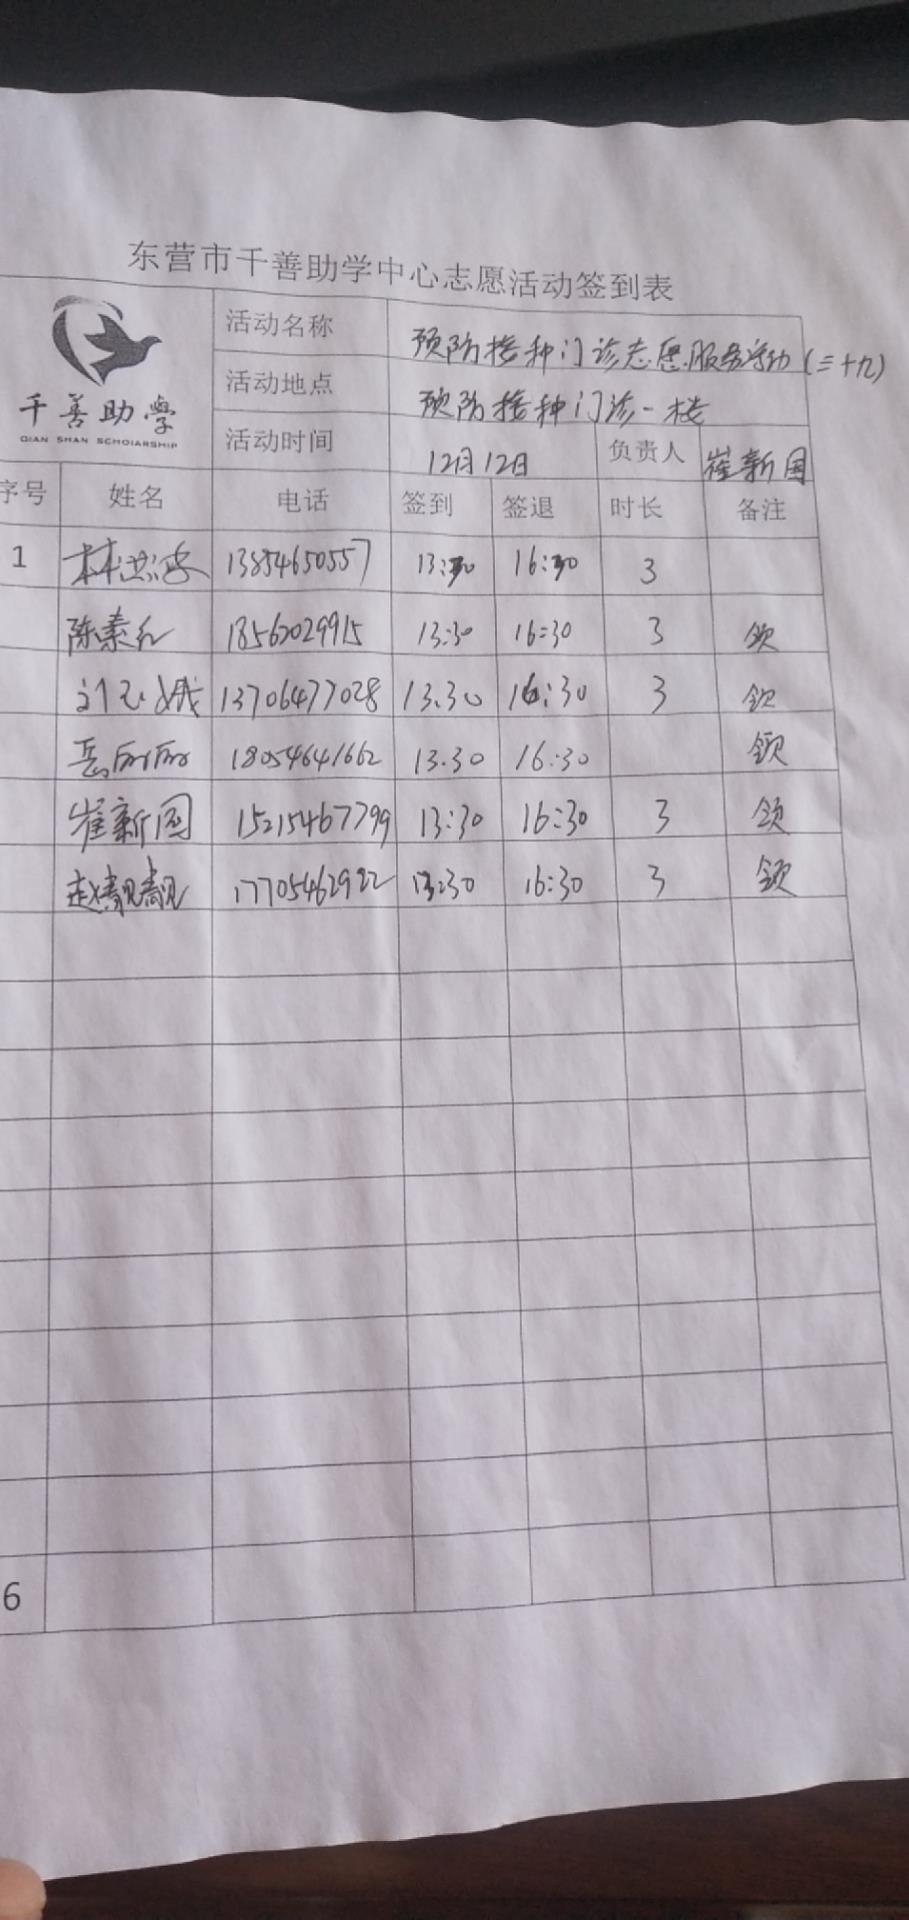 东营市千善助学中心志愿活动签到表
千善助學
QIAN SHAN SCHOIARSHIP
活动名称 预防接种门诊志愿服务活动(三十九)
活动地点 预防接种门诊一楼
活动时间 12月12日 负责人 崔新国
序号 姓名 电话 签到 签退 时长 备注
1 林 13854650557 13:30 16:30 3
陈素红 18562029915 13:30 16:30 3 领
13706477028 13.30 16:30 3 领
岳 18054641662 13.30 16:30 领
崔新国 15215467799 13:30 16:30 3 领
赵靓靓 17705462922 13:30 16:30 3 领
6